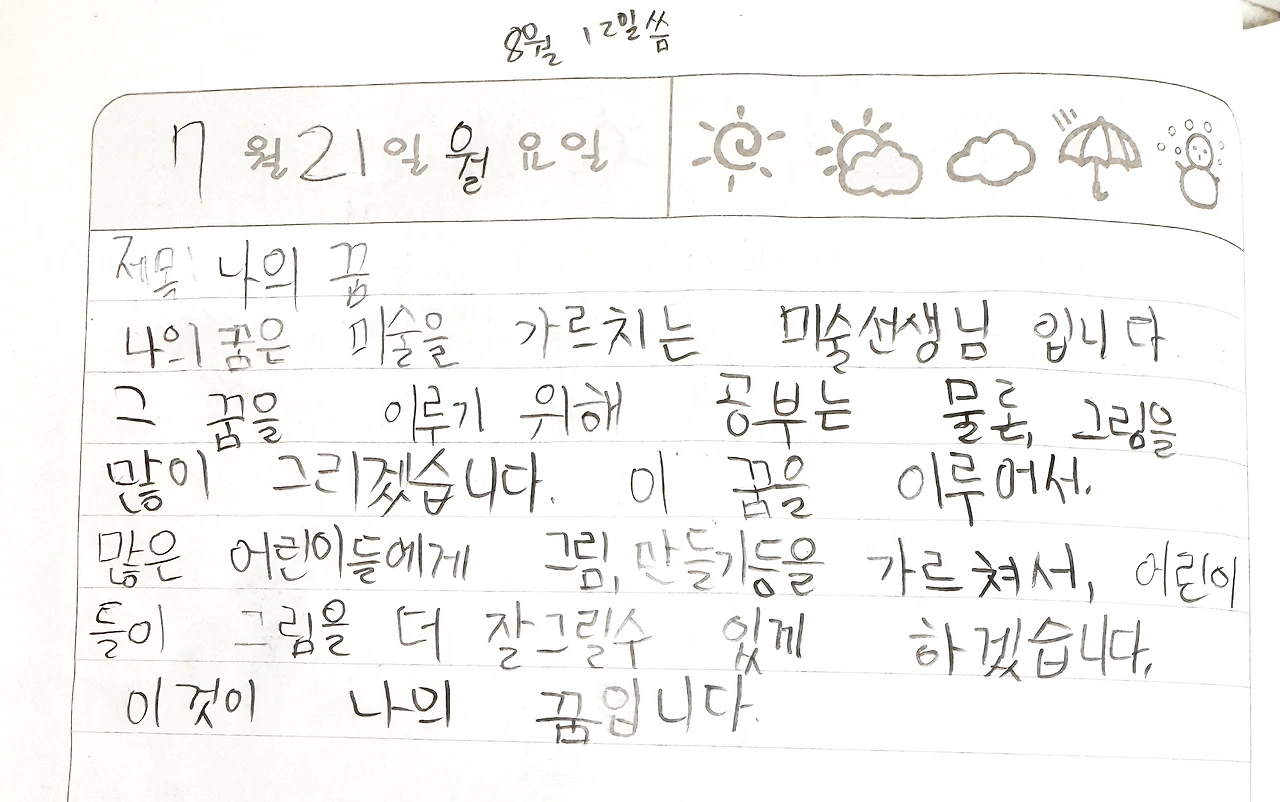 8월 12일씀
7월 21일 월요일
제목: 나의 꿈
나의 꿈은 미술을 가르치는 미술선생님 입니다
그 꿈을 이루기 위해 공부는 물론, 그림을
많이 그리겠습니다. 이 꿈을 이루어서.
많은 어린이들에게 그림, 만들기등을 가르쳐서, 어린이
들이 그림을 더 잘그릴수 있께 하겠습니다.
이것이 나의 꿈입니다.